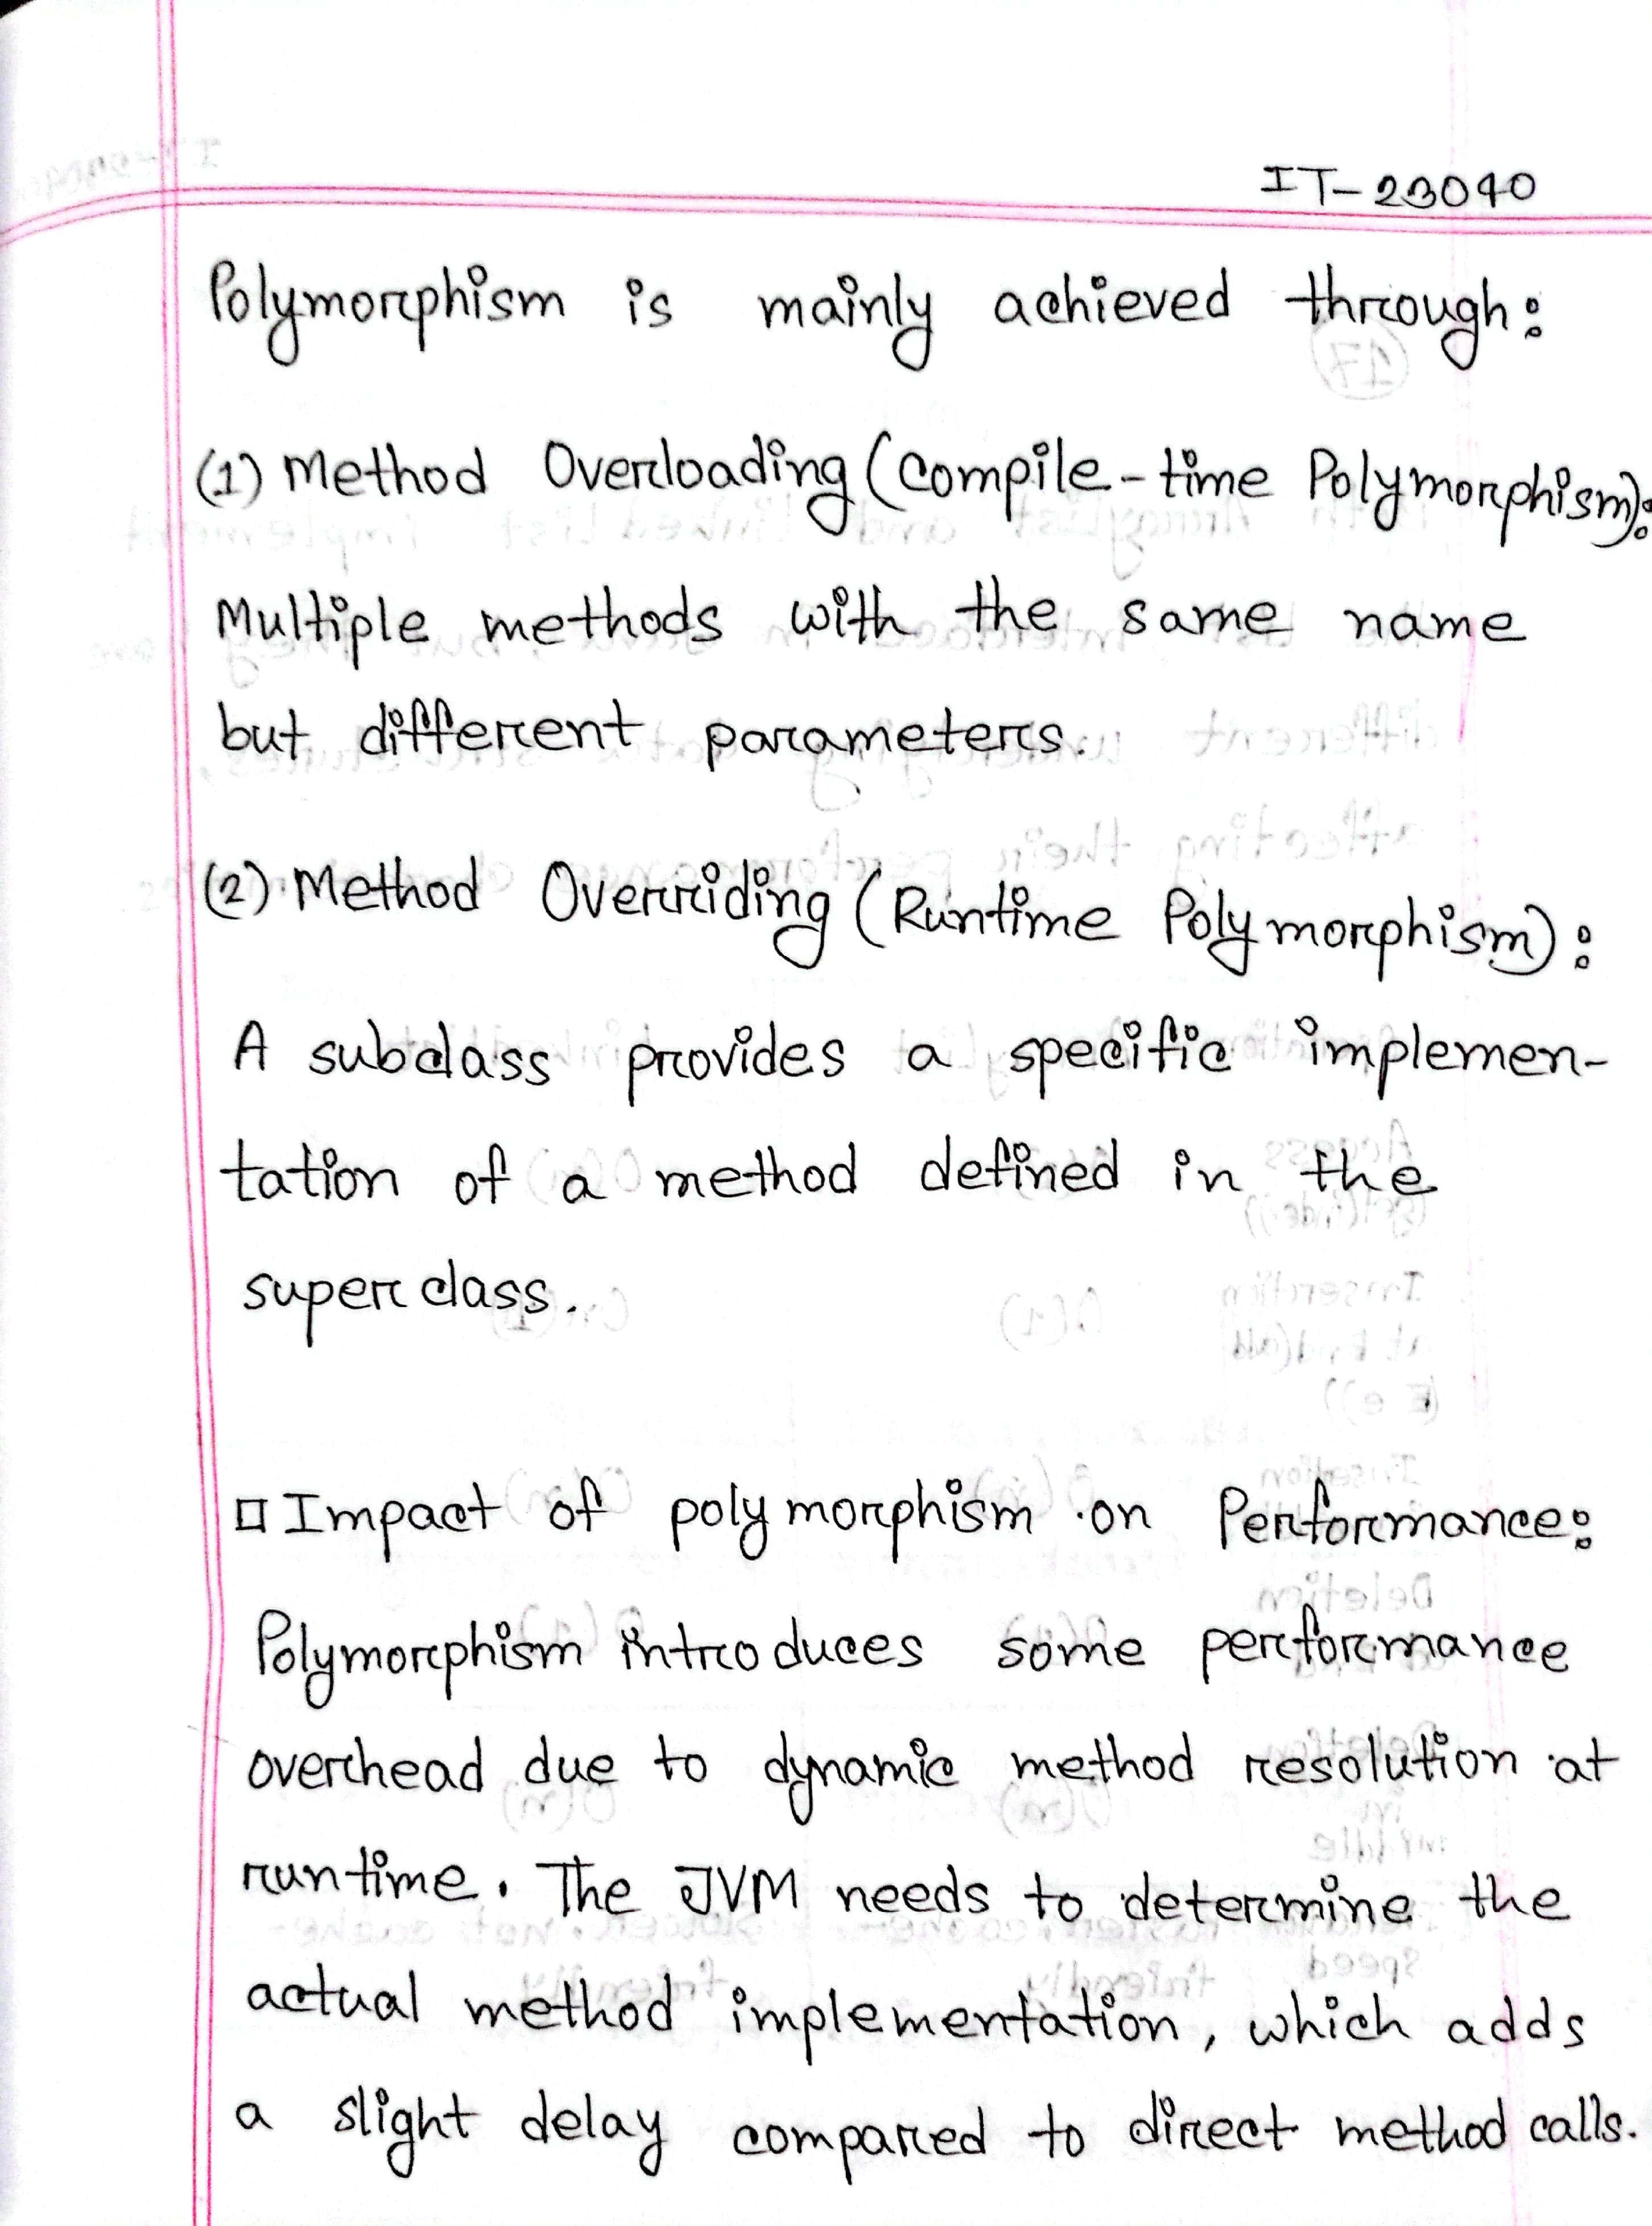 IT-23040
Polymorphism is mainly achieved through:
(1) Method Overloading (Compile-time Polymorphism):
Multiple methods with the same name
but different parameters.
(2) Method Overriding (Runtime Polymorphism):
A subclass provides a specific implemen-
tation of a method defined in the
superclass.
□ Impact of polymorphism on Performance:
Polymorphism introduces some performance
overhead due to dynamic method resolution at
runtime. The JVM needs to determine the
actual method implementation, which adds
a slight delay compared to direct method calls.